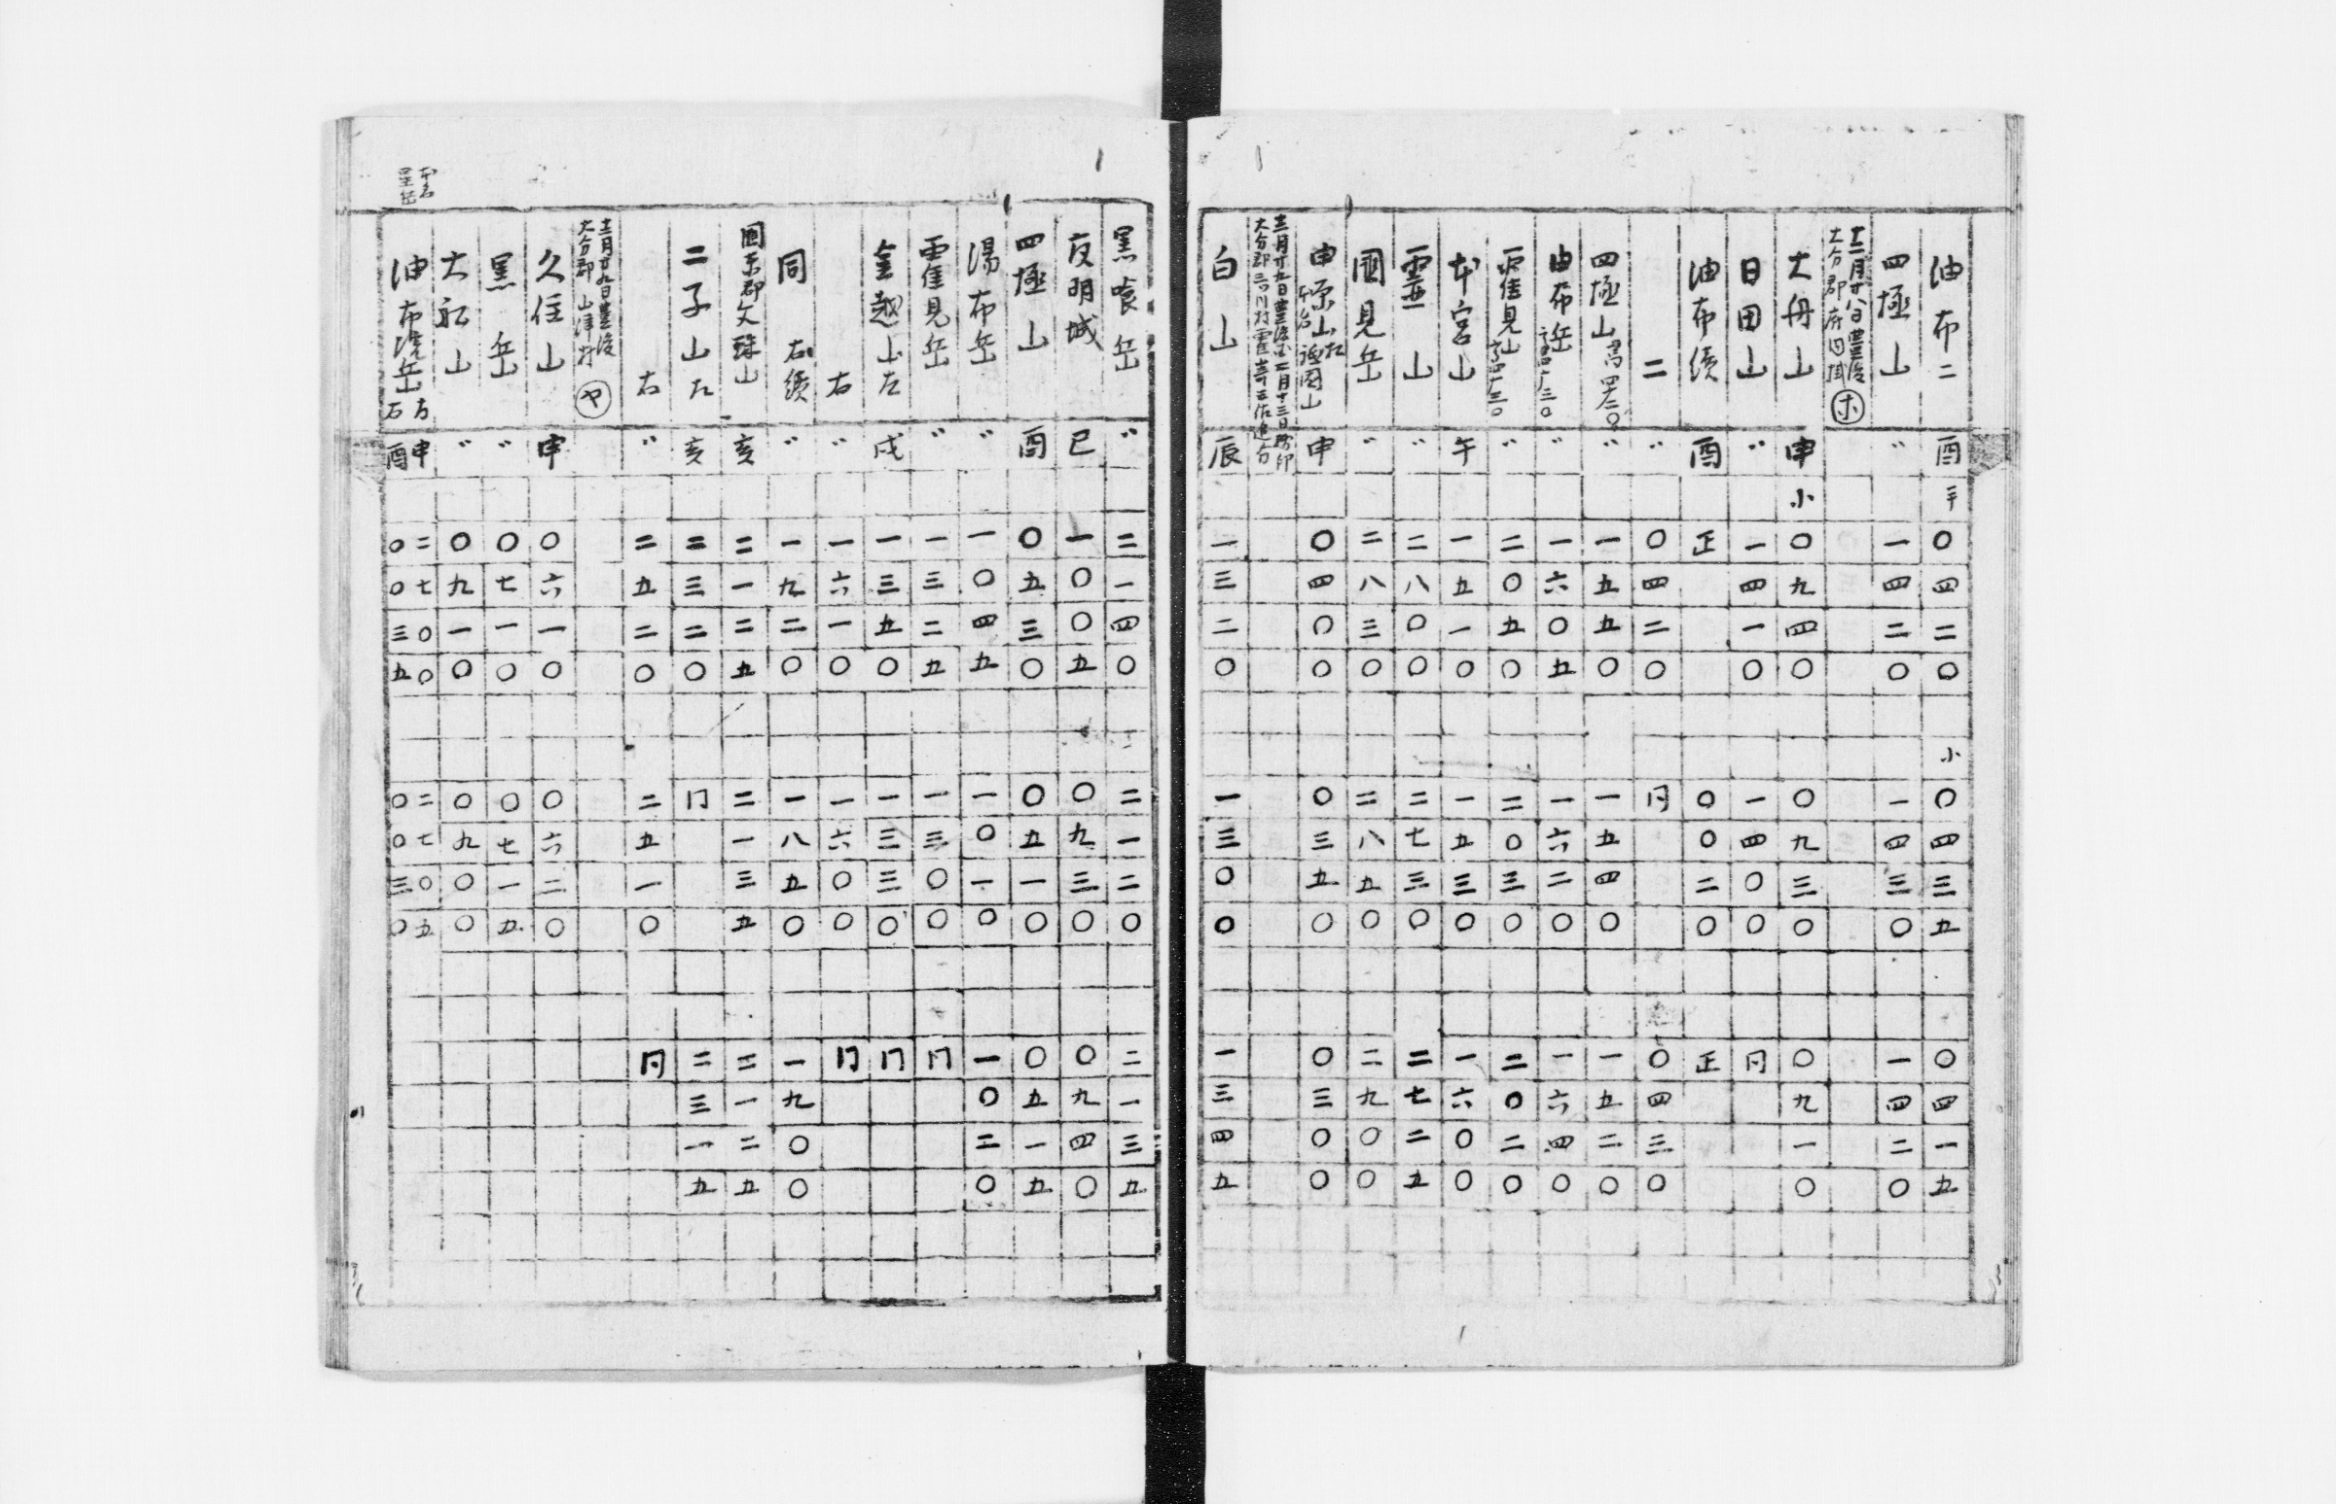 油布二 酉 〇四二〇 小 〇四三五 〇四一五
四極山 〃 一四二〇 一四三〇 一四二〇
十二月廿八日豊後
大分郡府内
大舟山 申 小 〇九四〇 〇九三〇 〇九一〇
日田山 〃 一四一〇 一四〇〇 同
油布續 酉 正 〇〇二〇 正
二 〃 〇四二〇 同 〇四三〇
四極山 〃 一五五〇 一五四〇 一五二〇
由布岳 〃 一六〇五 一六二〇 一六四〇
霍見山 〃 二〇五〇 二〇三〇 二〇二〇
本宮山 午 一五一〇 一五三〇 一六〇〇
霊山 〃 二八〇〇 二七三〇 二七二五
國見岳 〃 二八三〇 二八五〇 二九〇〇
申 〇四〇〇 〇三五〇 〇三〇〇
白山 辰 一三二〇 一三〇〇 一三四五
黒喰岳 〃 二一四〇 二一二〇 二一三五
夜明城 巳 一〇〇五 〇九三〇 〇九四〇
四極山 酉 〇五三〇 〇五一〇 〇五一五
湯布岳 〃 一〇四五 一〇一〇 一〇二〇
霍見岳 〃 一三二五 一三〇〇 同
金越山左 戌 一三五〇 一三三〇 同
右 〃 一六一〇 一六〇〇 同
同 右續 〃 一九二〇 一八五〇 一九〇〇
國東郡文珠山 亥 二一二五 二一三五 二一二五
二子山左 亥 二三二〇 同 二三一五
右 〃 二五二〇 二五一〇 同
十二月廿九日豊後
大分郡 山津村 ヤ
久住山 申 〇六一〇 〇六二〇
黒岳 〃 〇七一〇 〇七一五
大船山 〃 〇九一〇 〇九〇〇
油布嶽岳 方 申 二七〇〇 二七〇五
右 酉 〇〇三五 〇〇三〇